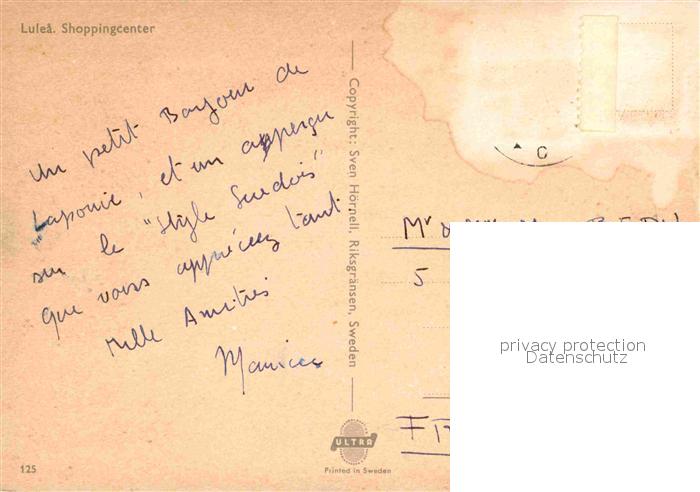 Luleå. Shoppingcenter
Un petit Bonjour de
Laponie, et un apperçu
sur le "Style Suedois"
que vous appréciez tant.
Mille Amitiés
Maurice
Copyright: Sven Hörnell, Riksgränsen, Sweden
C
Mr
5
privacy protection
Datenschutz
ULTRA
Printed in Sweden
125